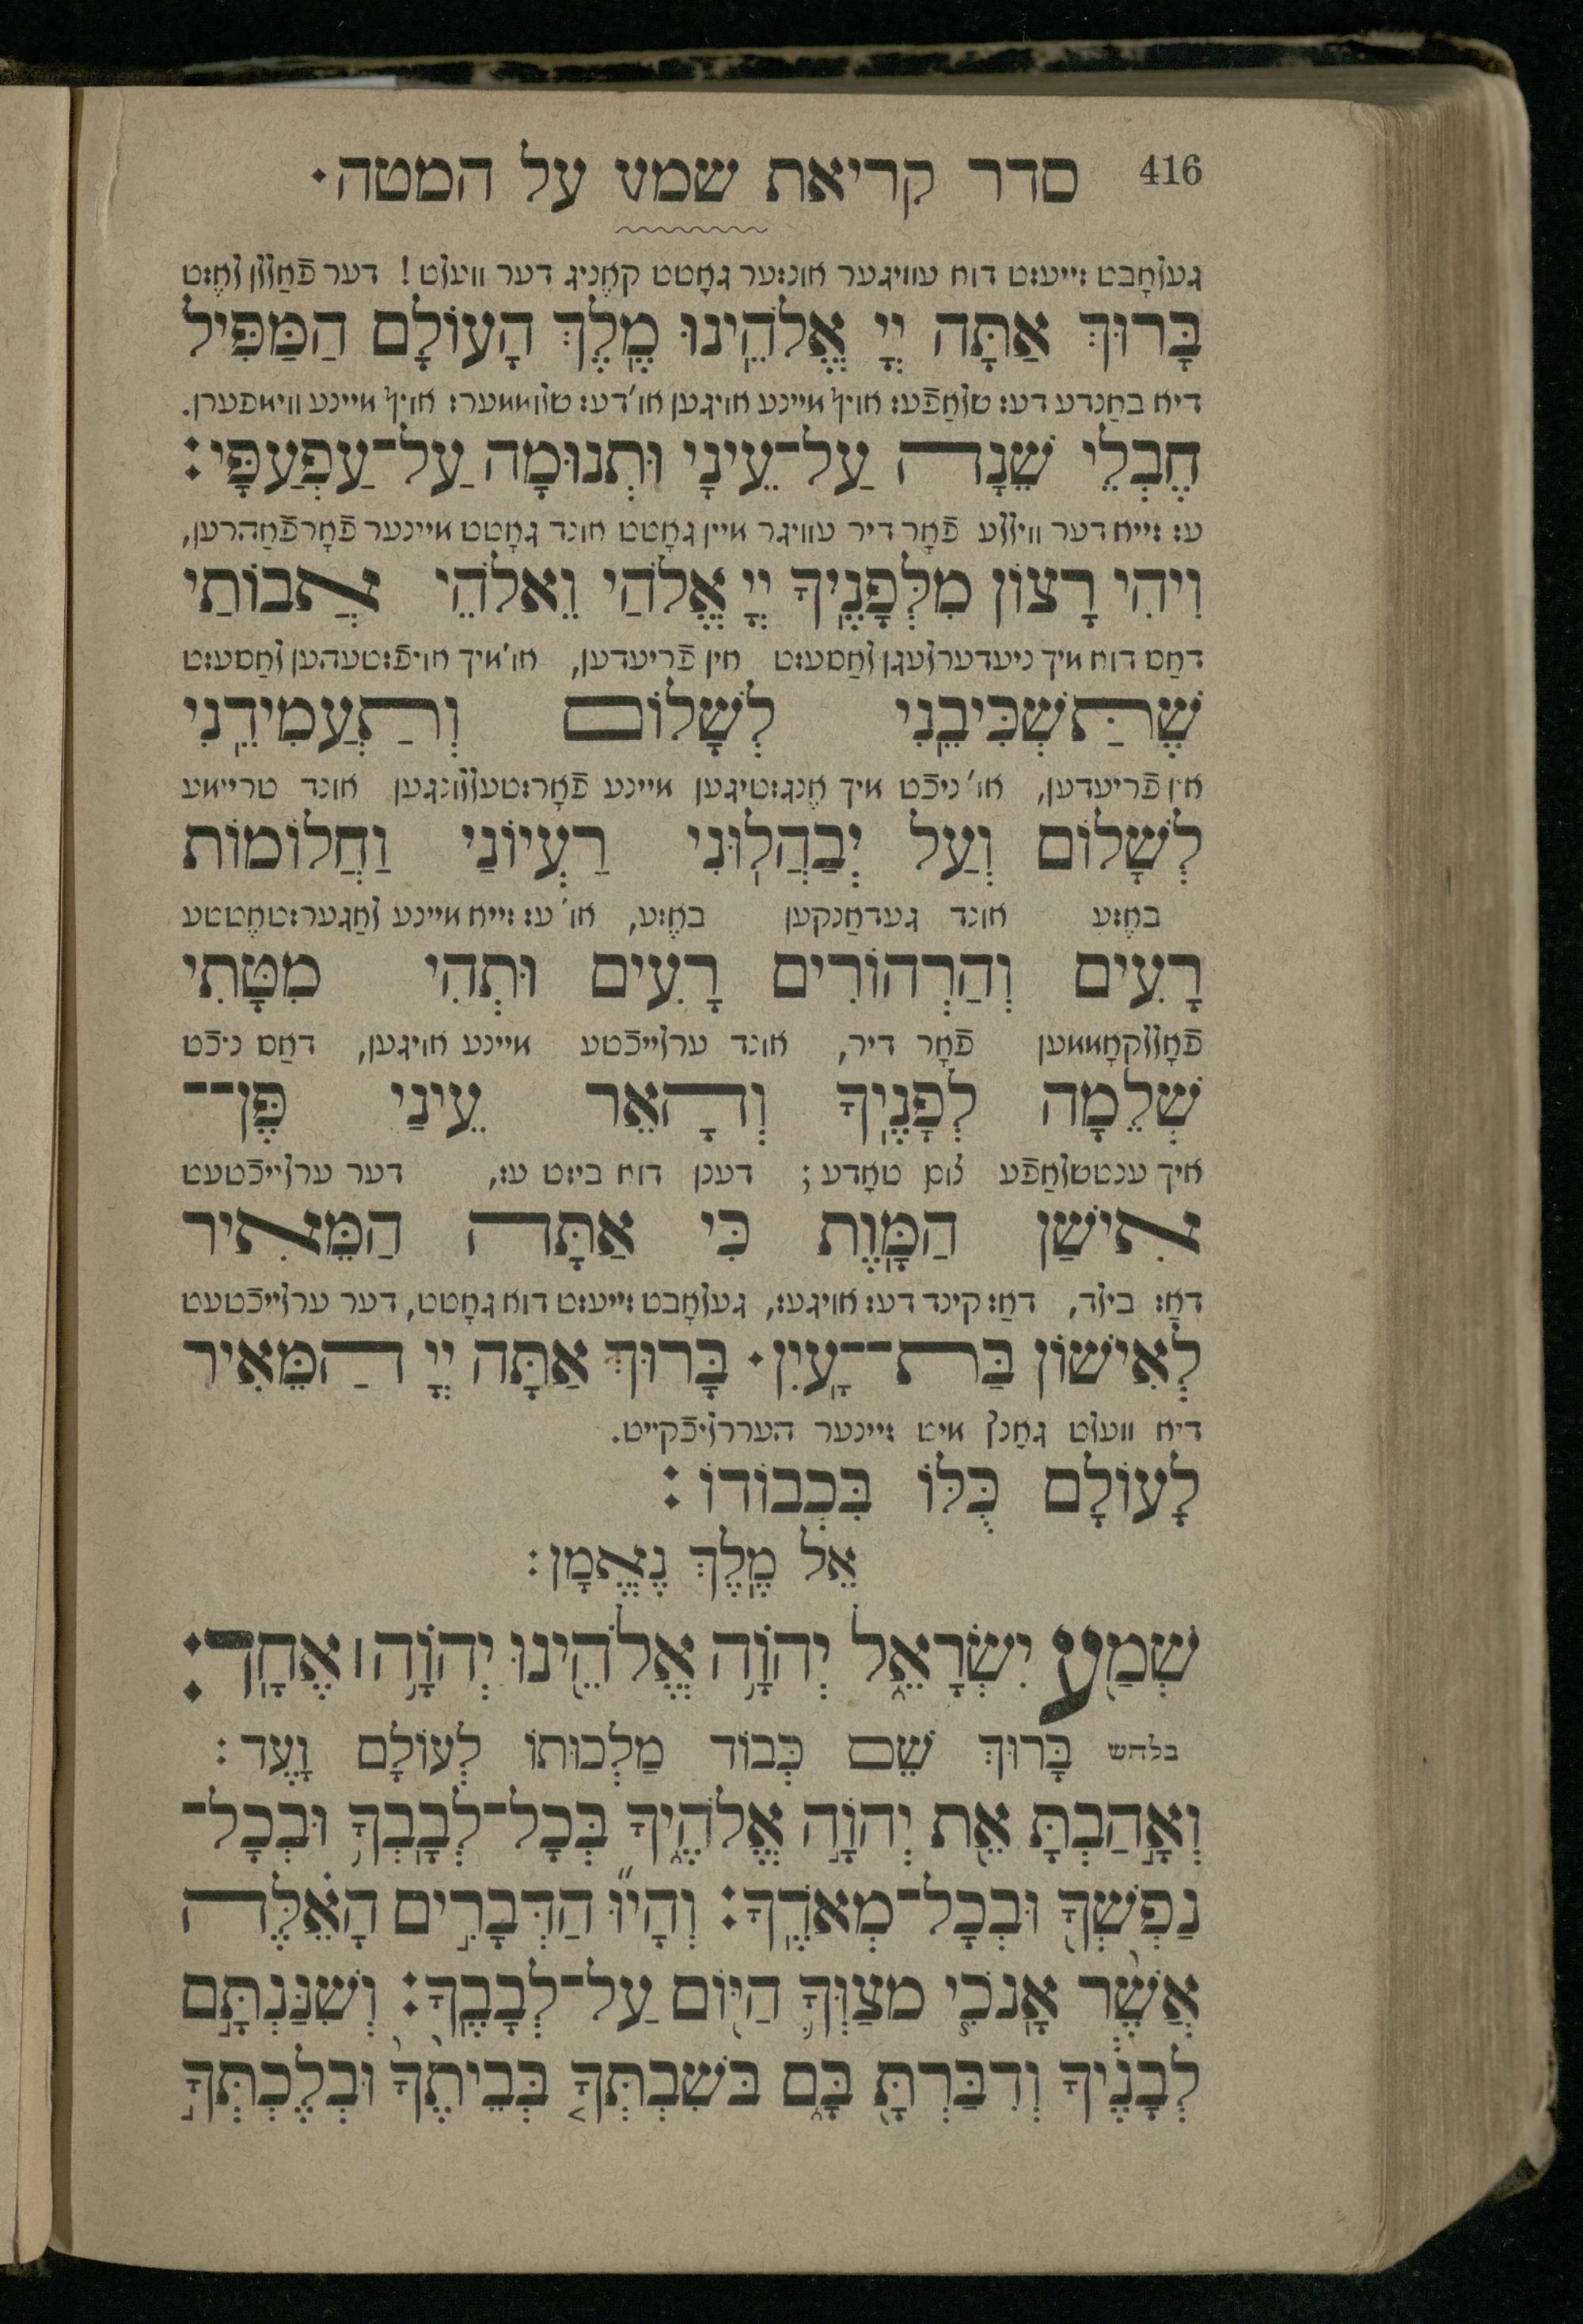 416 סדר קריאת שמע על המטה·
געלאָבט זייעזט דוא עוויגער אונזער גאָטט קאֶניג דער וועלט! דער פֿאַללן לאֶזט
בָּרוּךְ אַתָּה יְיָ אֱלֹהֵינוּ מֶלֶךְ הָעוֹלָם הַמַּפִּיל
דיא באַנדע דעז שלאַפֿעז אויף מיינע אויגען או' דען שלוממער אויף מיינע ווימפערן.
חֶבְלֵי שֵׁנָה עַל־עֵינָי וּתְנוּמָה עַל־עַפְעַפָּי׃
עז זייא דער ווילללע פֿאָר דיר עוויגר מיין גאָטט אונד גאָטט מיינער פֿאָרפֿאַהרען,
וִיהִי רָצוֹן מִלְּפָנֶיךָ יְיָ אֱלֹהַי וֵאלֹהֵי אֲבוֹתַי
דאַס דוא מיך ניעדערלעגן לאַססעזט אין פֿריעדען, או' מיך אויפֿזטעהען לאַססעזט
שֶׁתַּשְׁכִּיבֵנִי לְשָׁלוֹם וְתַעֲמִידֵנִי
אין פֿריעדען, או' ניכֿט מיך אֶנגזטיגען מיינע פֿאָרזטעללונגען אונד טרייאמע
לְשָׁלוֹם וְעַל יְבַהֲלוּנִי רַעְיוֹנַי וַחֲלוֹמוֹת
באֶזע אונד געדאַנקען באֶזע, או' עז זייא מיינע לאַגערזטאֶטטע
רָעִים וְהַרְהוֹרִים רָעִים וּתְהִי מִטָּתִי
פֿאָללקאָממען פֿאָר דיר, אונד ערלייכֿטע מיינע אויגען, דאַס ניכֿט
שְׁלֵמָה לְפָנֶיךָ וְהָאֵר עֵינַי פֶּן־־
איך ענטשלאַפֿע צום טאָדע; דענן דוא ביזט עז, דער ערלייכֿטעט
אִישַׁן הַמָּוֶת כִּי אַתָּה הַמֵּאִיר
דאַז בילד, דאַז קינד דעז אויגעז, געלאָבט זייעזט דוא גאָטט, דער ערלייכֿטעט
לְאִישׁוֹן בַּת־־עָיִן· בָּרוּךְ אַתָּה יְיָ הַמֵּאִיר
דיא וועלט גאַנץ מיט זיינער העררליכֿקייט.
לָעוֹלָם כֻּלּוֹ בִּכְבוֹדוֹ׃
אֵל מֶלֶךְ נֶאֱמָן׃
שְׁמַע יִשְׂרָאֵל יְהוָֹה אֱלֹהֵינוּ יְהוָֹה ׀ אֶחָד׃
בלחש בָּרוּךְ שֵׁם כְּבוֹד מַלְכוּתוֹ לְעוֹלָם וָעֶד׃
וְאָהַבְתָּ אֵת יְהוָֹה אֱלֹהֶיךָ בְּכָל־לְבָבְךָ וּבְכָל־
נַפְשְׁךָ וּבְכָל־מְאֹדֶךָ׃ וְהָיוּ הַדְּבָרִים הָאֵלֶּה
אֲשֶׁר אָנֹכִי מצַוְּךָ הַיּוֹם עַל־לְבָבֶךָ׃ וְשִׁנַּנְתָּם
לְבָנֶיךָ וְדִבַּרְתָּ בָּם בּשִׁבְתְּךָ בְּבֵיתֶךָ וּבְלֶכְתְּךָ